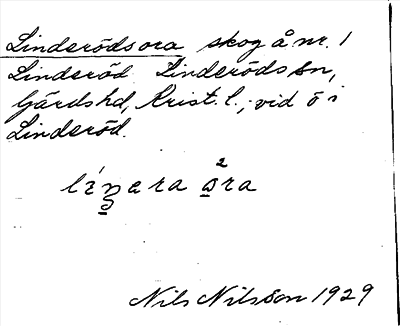 Linderödsora skog å nr. 1
Linderöd Linderöds sn,
Gärds hd, Krist. l.; vid ö i
Linderöd.
Nils Nilsson 1929